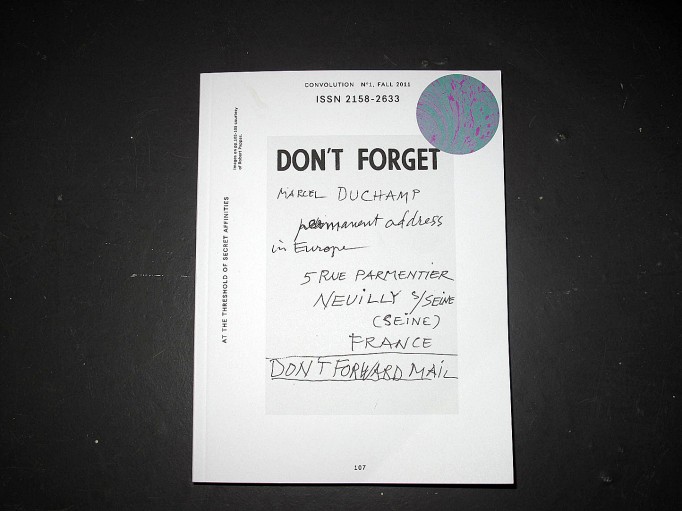 CONVOLUTION Nº1, FALL 2011
ISSN 2158-2633
Images on pp. 102-103 courtesy
of Robert Poppel.
AT THE THRESHOLD OF SECRET AFFINITIES
DON'T FORGET
MARCEL DUCHAMP
permanent address
in Europe
5 RUE PARMENTIER
NEUILLY S/SEINE
(SEINE)
FRANCE
DON'T FORWARD MAIL
107